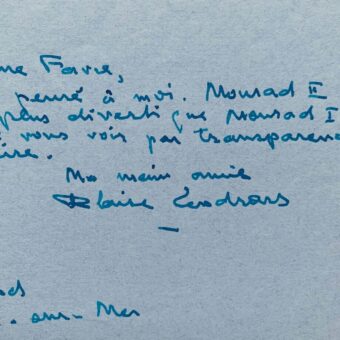 me Favre,
pensé à moi. Mourad II
plus diverti que Mourad I
vous voir par transparen
ire.
Ma main amie
Blaise Cendrars
sur-Mer